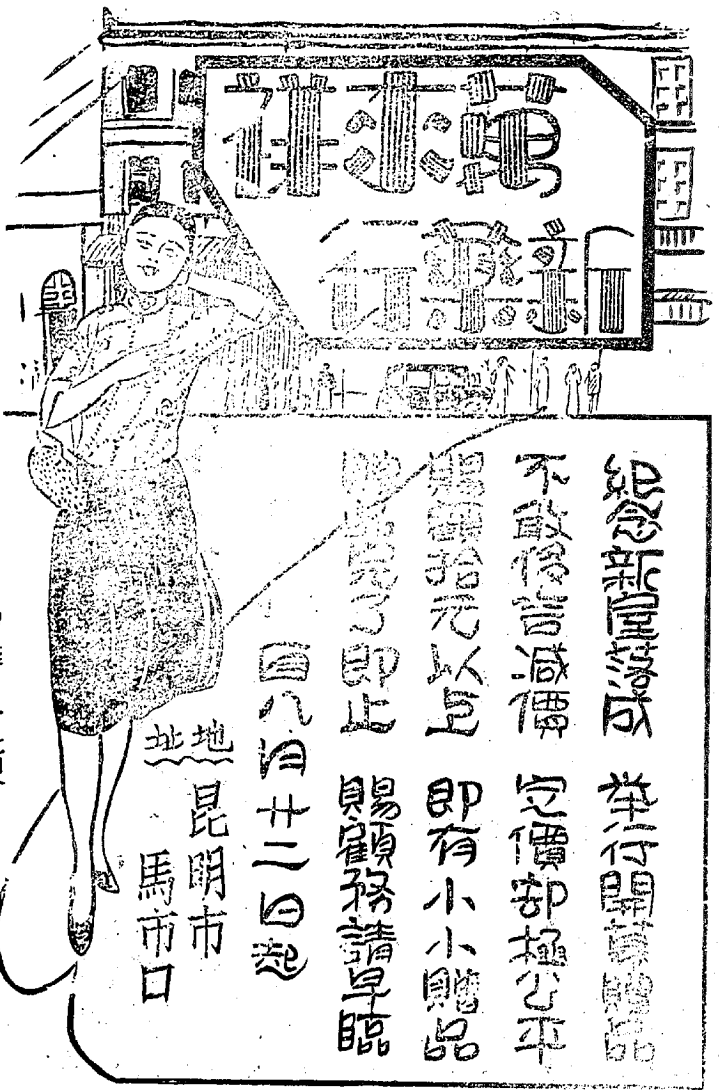 紀念新屋落成 举行開幕贈品
不敢侈言減價 定價却極公平
賜顧拾元以上 即有小小贈品
贈品完了即止 賜顧務請早臨
自八月廿二日起
地址 昆明市
馬市口